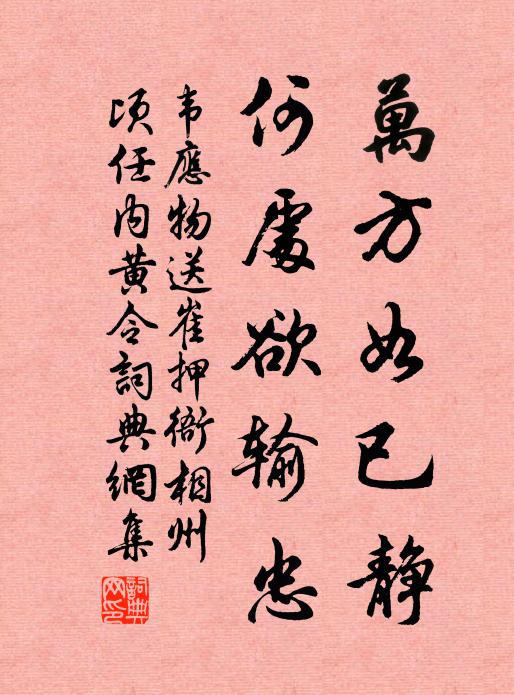 萬方如已靜
何處欲輸忠
韦應物送崔押衙相州
頃任內黄令詞典網集